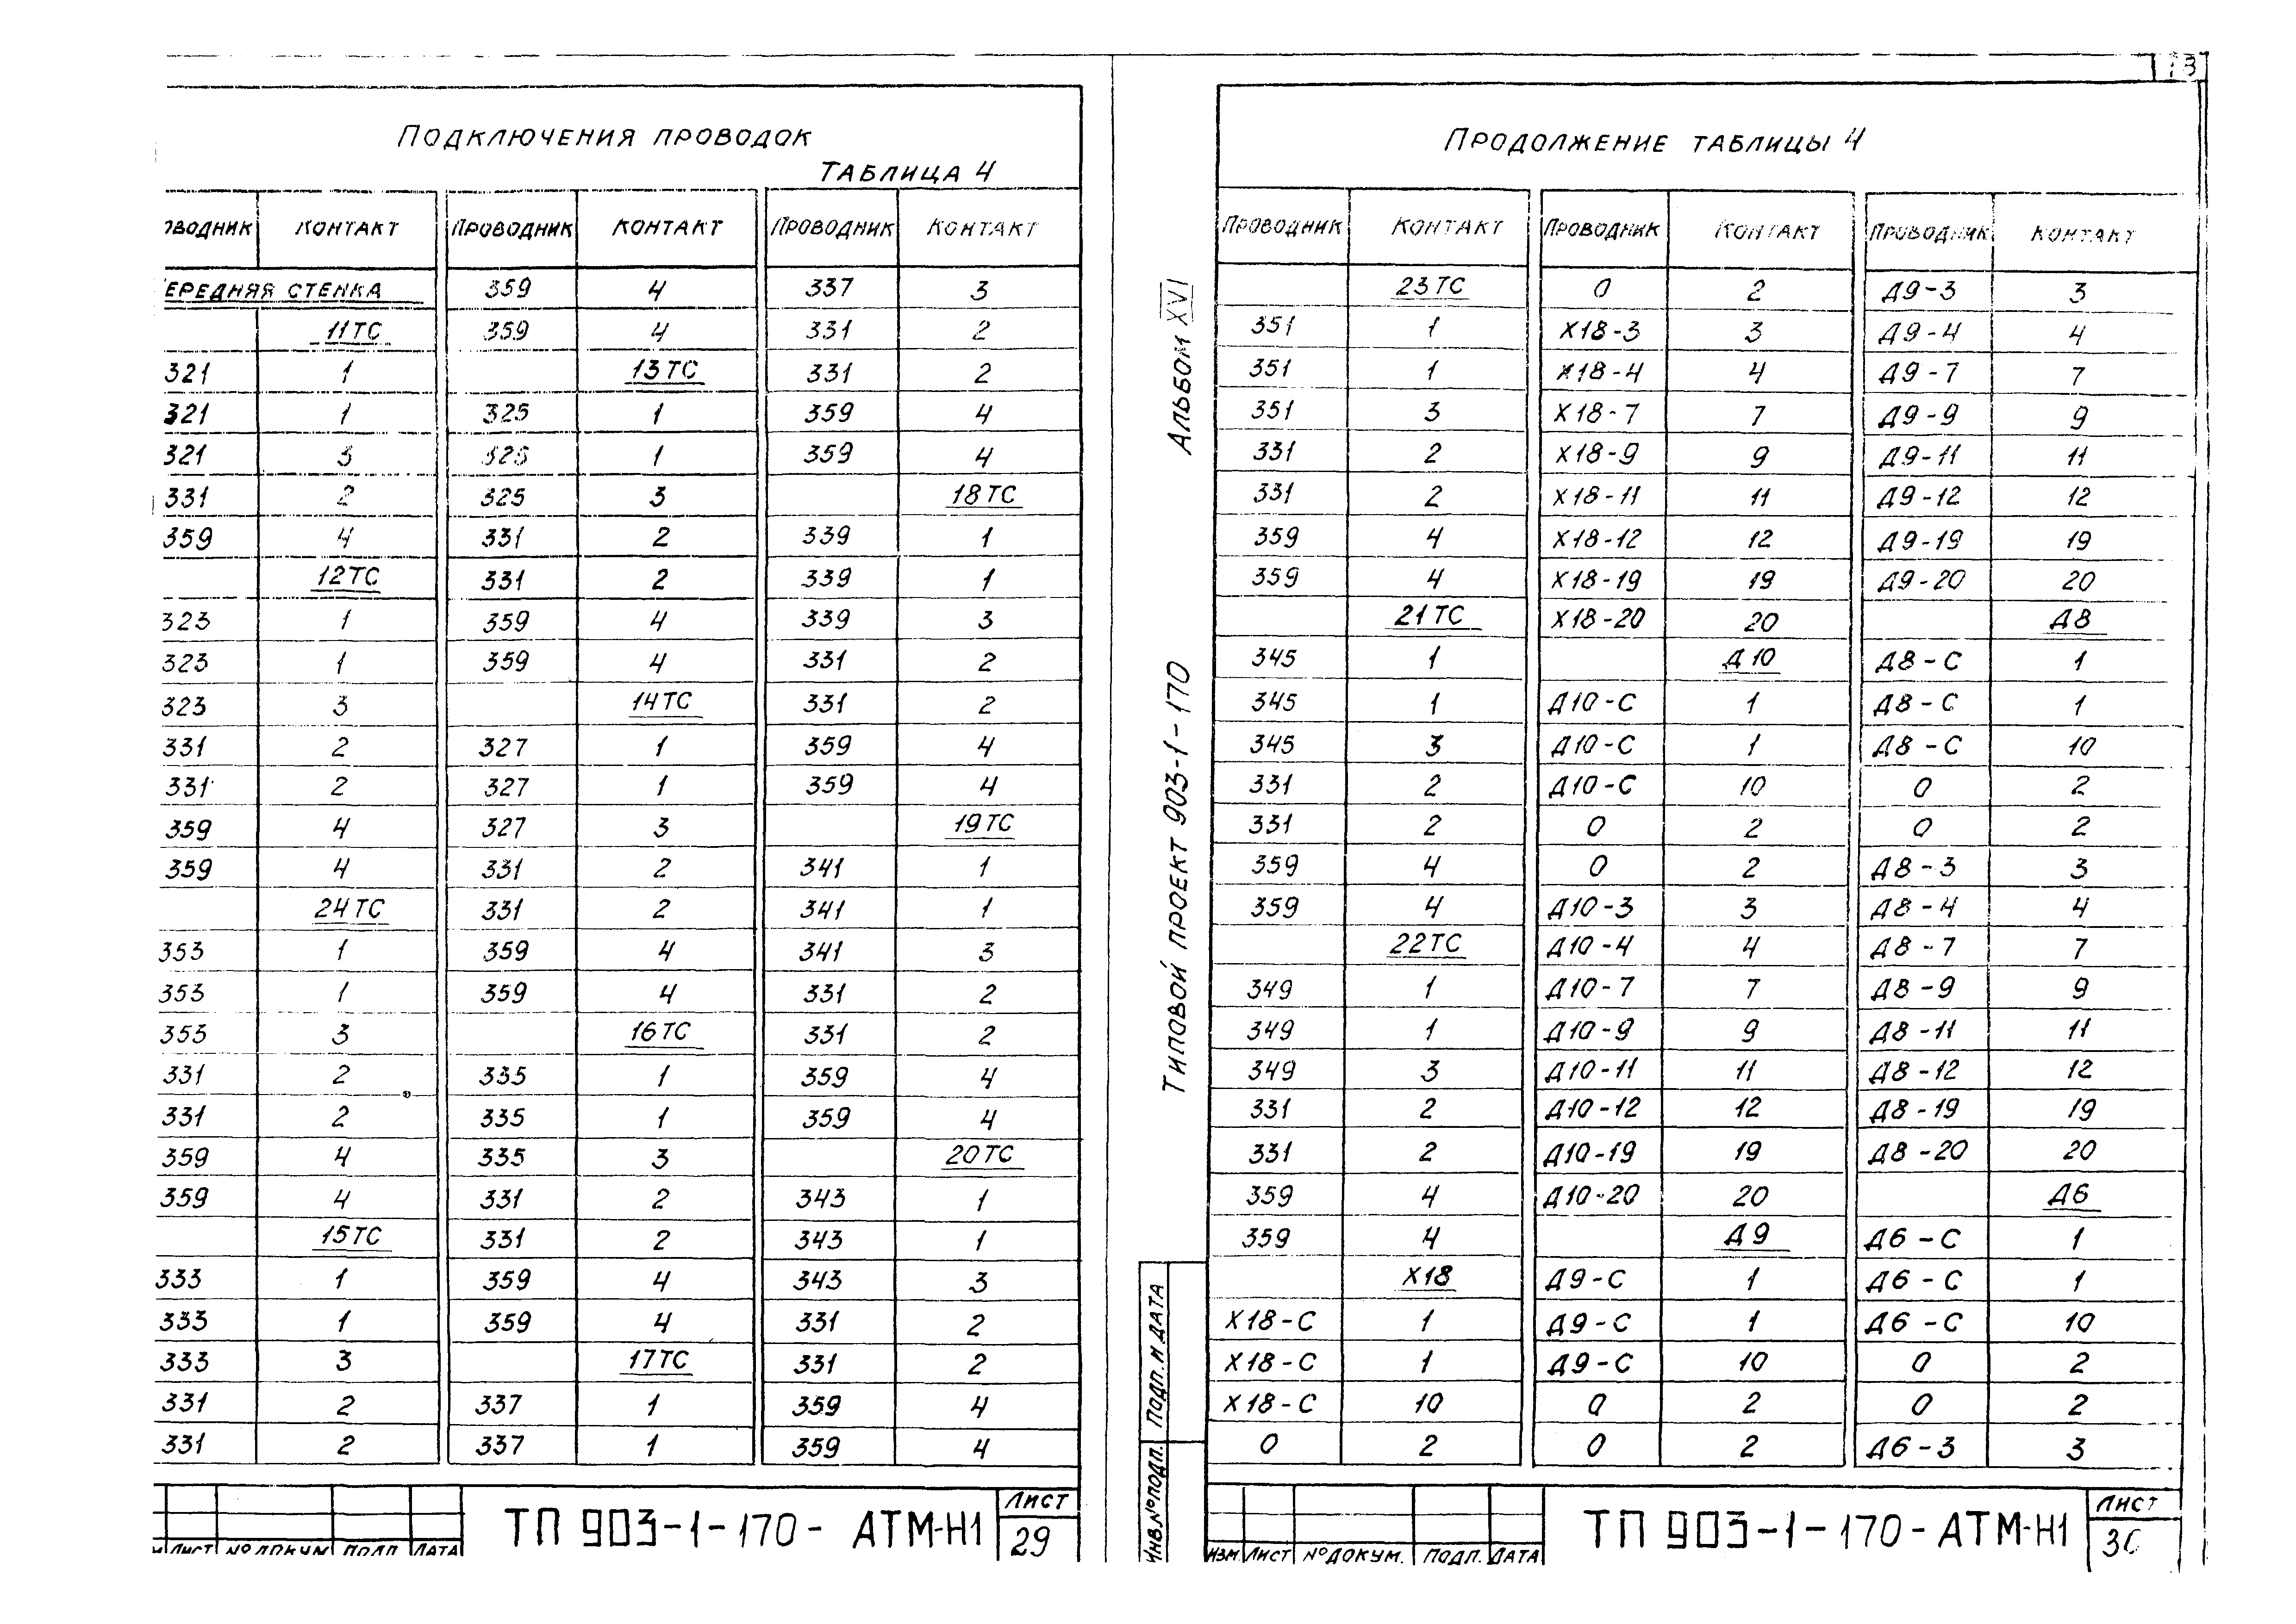 ПОДКЛЮЧЕНИЯ ПРОВОДОК
ТАБЛИЦА 4
ОВОДНИК КОНТАКТ ПРОВОДНИК КОНТАКТ ПРОВОДНИК КОНТАКТ
ЕРЕДНЯЯ СТЕНКА 359 4 337 3
11ТС 359 4 331 2
321 1 13ТС 331 2
321 1 325 1 359 4
321 3 325 1 359 4
331 2 325 3 18ТС
359 4 331 2 339 1
12ТС 331 2 339 1
323 1 359 4 339 3
323 1 359 4 331 2
323 3 14ТС 331 2
331 2 327 1 359 4
331 2 327 1 359 4
359 4 327 3 19ТС
359 4 331 2 341 1
24ТС 331 2 341 1
353 1 359 4 341 3
353 1 359 4 331 2
353 3 16ТС 331 2
331 2 335 1 359 4
331 2 335 1 359 4
359 4 335 3 20ТС
359 4 331 2 343 1
15ТС 331 2 343 1
333 1 359 4 343 3
333 1 359 4 331 2
333 3 17ТС 331 2
331 2 337 1 359 4
331 2 337 1 359 4
ЛИСТ №ДОКУМ ПОДП ДАТА
ТП 903-1-170- АТМ-Н1
ЛИСТ
29
АЛЬБОМ XVI
ТИПОВОЙ ПРОЕКТ 903-1-170
ПОДП. И ДАТА
ИНВ.№ПОДП.
ПРОДОЛЖЕНИЕ ТАБЛИЦЫ 4
ПРОВОДНИК КОНТАКТ ПРОВОДНИК КОНТАКТ ПРОВОДНИК КОНТАКТ
23ТС 0 2 Д9-3 3
351 1 Х18-3 3 Д9-4 4
351 1 Х18-4 4 Д9-7 7
351 3 Х18-7 7 Д9-9 9
331 2 Х18-9 9 Д9-11 11
331 2 Х18-11 11 Д9-12 12
359 4 Х18-12 12 Д9-19 19
359 4 Х18-19 19 Д9-20 20
21ТС Х18-20 20 Д8
345 1 Д10 Д8-С 1
345 1 Д10-С 1 Д8-С 1
345 3 Д10-С 1 Д8-С 10
331 2 Д10-С 10 0 2
331 2 0 2 0 2
359 4 0 2 Д8-3 3
359 4 Д10-3 3 Д8-4 4
22ТС Д10-4 4 Д8-7 7
349 1 Д10-7 7 Д8-9 9
349 1 Д10-9 9 Д8-11 11
349 3 Д10-11 11 Д8-12 12
331 2 Д10-12 12 Д8-19 19
331 2 Д10-19 19 Д8-20 20
359 4 Д10-20 20 Д6
359 4 Д9 Д6-С 1
Х18 Д9-С 1 Д6-С 1
Х18-С 1 Д9-С 1 Д6-С 10
Х18-С 1 Д9-С 10 0 2
Х18-С 10 0 2 0 2
0 2 0 2 Д6-3 3
ИЗМ ЛИСТ №ДОКУМ. ПОДП. ДАТА
ТП 903-1-170-АТМ-Н1
ЛИСТ